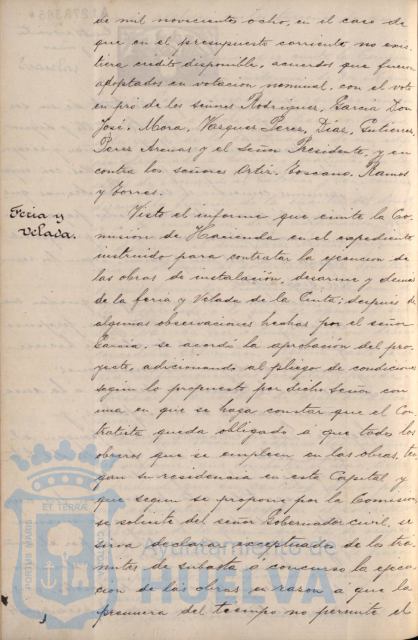 de mil noviciento ocho, en el caso de
que en el presupuesto corriente no exis-
tiera credito disponible, acuerdos que fueron
adoptados en votacion nominal, con el voto
en pró de los señores Rodriguez, García Don
José, Mora, Vazquez Perez, Diaz, Gutierrez,
Perez Arenas y el señor Presidente, y en
contra los señores Ortiz, Toscano, Ramos
y Torres.
Feria y
Velada.
Visto el informe que emite la Co-
misión de Hacienda en el expediente
instruido para contratar la ejecucion de
las obras de instalación, desarme y demas
de la feria y Velada de la Cinta; después de
algunas observaciones hechas por el señor
García, se acordó la aprobación del pro-
yecto, adicionando al pliego de condiciones
según lo propuesto por dicho Señor con
una en que se haga constar que el Con-
tratista queda obligado á que todos los
obreros que se empleen en las obras, ten-
gan su residencia en esta Capital y
que segun se propone por la Comision
se solicite del señor Gobernador civil, se
sirva declarar exceptuadas de los trá-
mites de subasta ó concurso la ejecu-
cion de las obras en razon á que la
premura del tiempo no permite el
PORTUS MARIS
ET TERRÆ
Ayuntamiento de
HUELVA